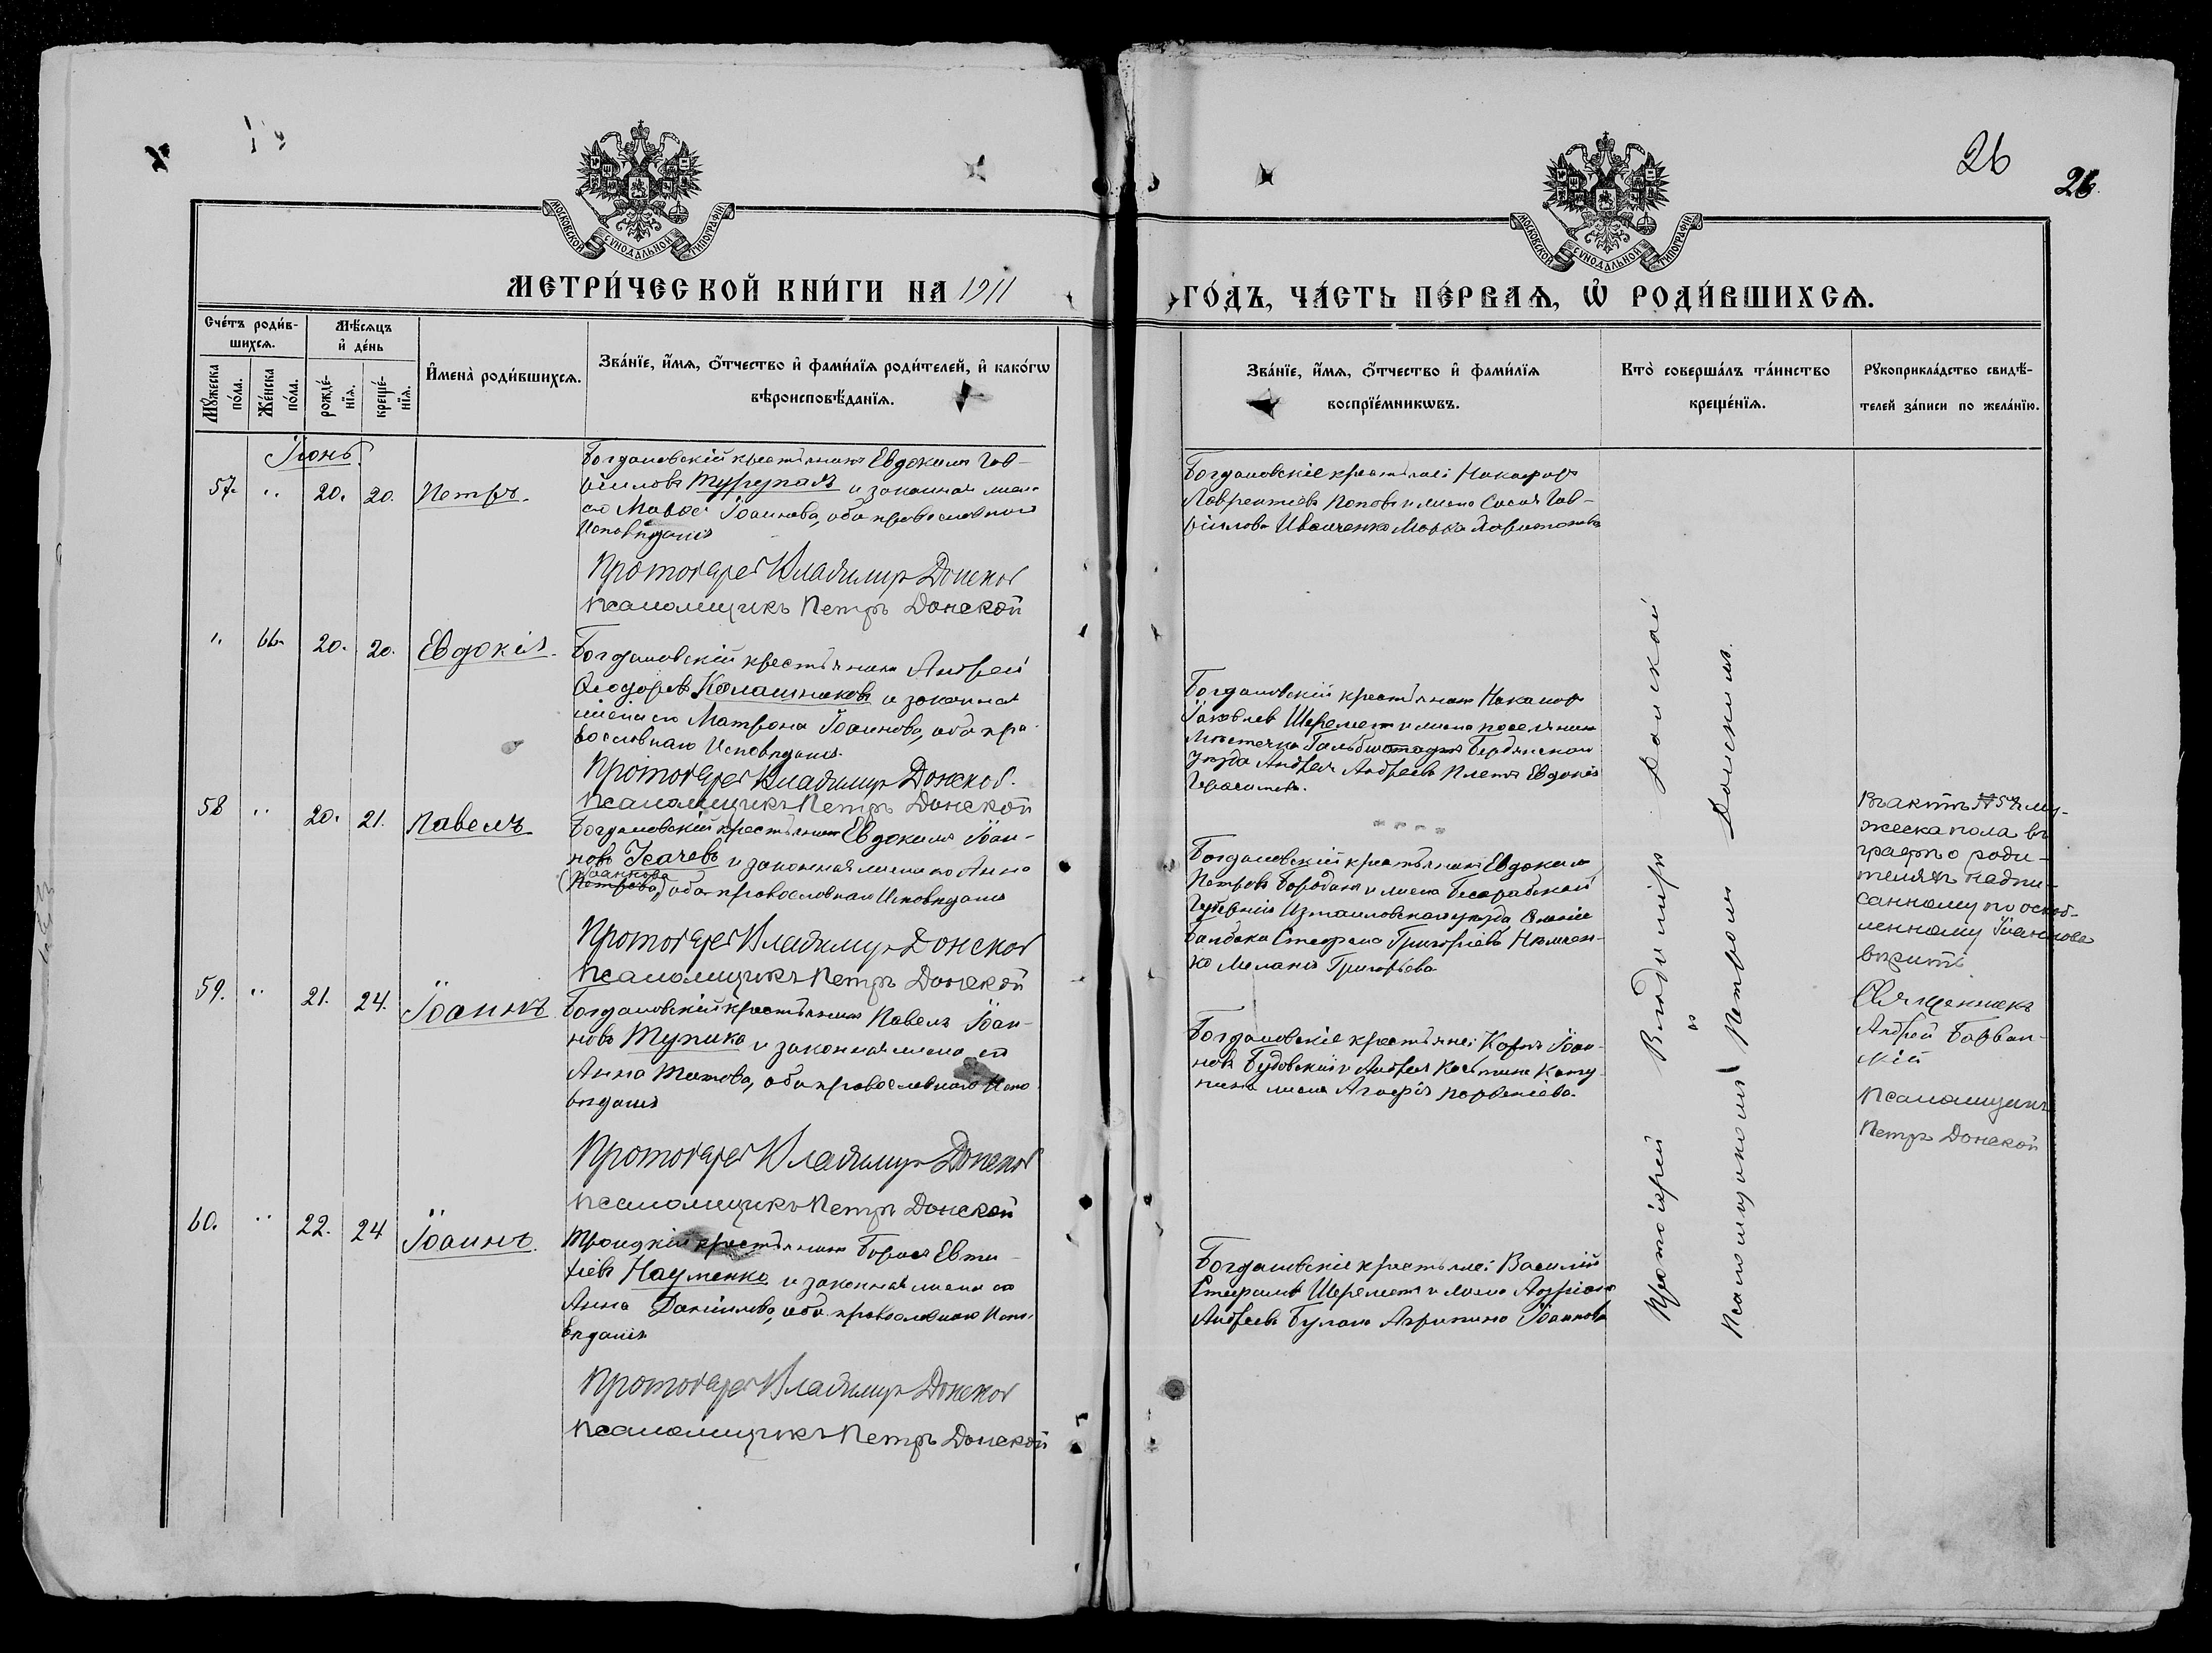 26
26.
МОСКОВСКОЙ СѴНОДАЛЬНОЙ ТИПОГРАФІИ
МОСКОВСКОЙ СѴНОДАЛЬНОЙ ТИПОГРАФІИ
МЕТРИ́ЧЕСКОЙ КНИ́ГИ НА 1911
ГО́ДЪ, ЧА́СТЬ ПЕ́РВАѦ, Ѡ҆ РОДИ́ВШИХСѦ.
Сче́тъ роди́в-
шихсѧ.
Мꙋ́жеска по́ла.
Же́нска по́ла.
Мѣ́сѧцъ
и҆ де́нь
рожде́-
нїѧ.
креще́-
нїѧ.
И҆мена̀ роди́вшихсѧ.
Зва́нїе, и҆́мѧ, ѻ҆́тчество и҆ фами́лїѧ роди́телей, и҆ како́гѡ
вѣроисповѣ́данїѧ.
Зва́нїе, и҆́мѧ, ѻ҆́тчество и҆ фами́лїѧ
воспрїе́мникѡвъ.
Кто̀ соверша́лъ та́инство
креще́нїѧ.
Рꙋкоприкла́дство свидѣ́-
телей за́писи по жела́нїю.
Іюнь.
57. " 20. 20. Петръ.
Богдановскій крестьянинъ Евдокимъ Гав-
ріиловъ и законная жена
его Іоаннова, оба православнаго
Исповѣданія
Протоіерей Владимиръ Донской
Псаломщикъ Петръ Донской
Богдановскіе крестьяне: Никифоръ
Лаврентіевъ Поповъ и жена Гав-
ріилова Иванченко Марѳа Харитонова
" 66. 20. 20. Евдокія.
Богдановскій крестьянинъ Андрей
Ѳеодоровъ Калашниковъ и законная
жена его Матрона Іоаннова, оба пра-
вославнаго Исповѣданія.
Протоіерей Владимиръ Донской.
Псаломщикъ Петръ Донской
Богдановскій крестьянинъ Никаноръ
Іаковлевъ Шереметъ и жена поселянина
Мѣстечка Бердянскаго
уѣзда Андрея Андреева Евдокія
Герасимова.
58 " 20. 21. Павелъ
Богдановскій крестьянинъ Евдокимъ Іоан-
новъ Усачевъ и законная жена его Анна
Іоаннова
(Петрова) оба православнаго Исповѣданія
Протоіерей Владимиръ Донской
Псаломщикъ Петръ Донской
Богдановскій крестьянинъ Евдокимъ
Петровъ Бородинъ и жена Бесарабской
Губерніи Измаиловскаго уѣзда
Стефана Григоріева Нѣмчен-
ко Меланія Григорьева
Въ актѣ №58 му-
жеска пола въ
графѣ о роди-
теляхъ надпи-
санному по оскоб-
ленному Іоаннова
вѣрить
Священникъ
Андрей
Псаломщикъ
Петръ Донской
59. " 21. 24. Іоаннъ
Богдановскій крестьянинъ Павелъ Іоан-
новъ Тупика и законная жена его
Анна Титова, оба православнаго Испо-
вѣданія
Протоіерей Владимиръ Донской
Псаломщикъ Петръ Донской
Богдановскіе крестьяне: Карпъ Іоан-
новъ Будовскій и Андрея
жена Агафія Парѳеніева.
60. " 22. 24 Іоаннъ.
Троицкій крестьянинъ Борисъ Евти-
хіевъ Науменко и законная жена его
Анна Даніилова, оба православнаго Испо-
вѣданія
Протоіерей Владимиръ Донской
Псаломщикъ Петръ Донской
Богдановскіе крестьяне: Василій
Стефановъ Шереметъ и жена
Андреева Агрипина Іоаннова
Протоіерей Владимиръ Донской
съ
Псаломщикомъ Петромъ Донскимъ.